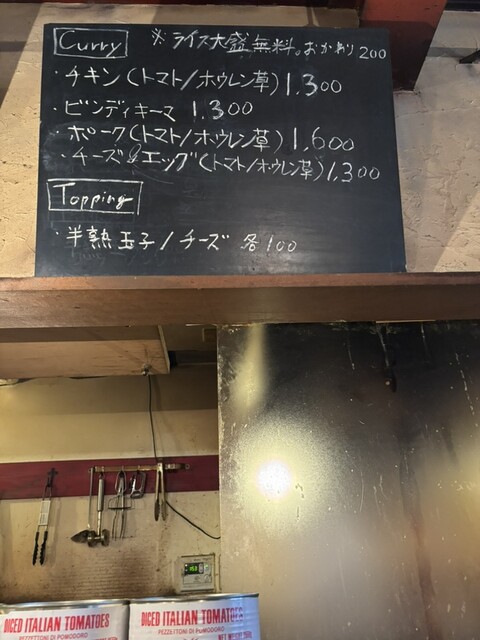 Curry ※ライス大盛無料。おかわり200
・チキン(トマト/ホウレン草)1,300
・ビンディキーマ 1.300
・ポーク(トマト/ホウレン草)1,600
・チーズ&エッグ(トマト/ホウレン草)1,300
Topping
・半熟玉子/チーズ 各100
DICED ITALIAN TOMATOES
PEZZETTONI DI POMODORO
DICED ITALIAN TOMATOES
PEZZETTONI DI POMODORO
NET WEIGHT